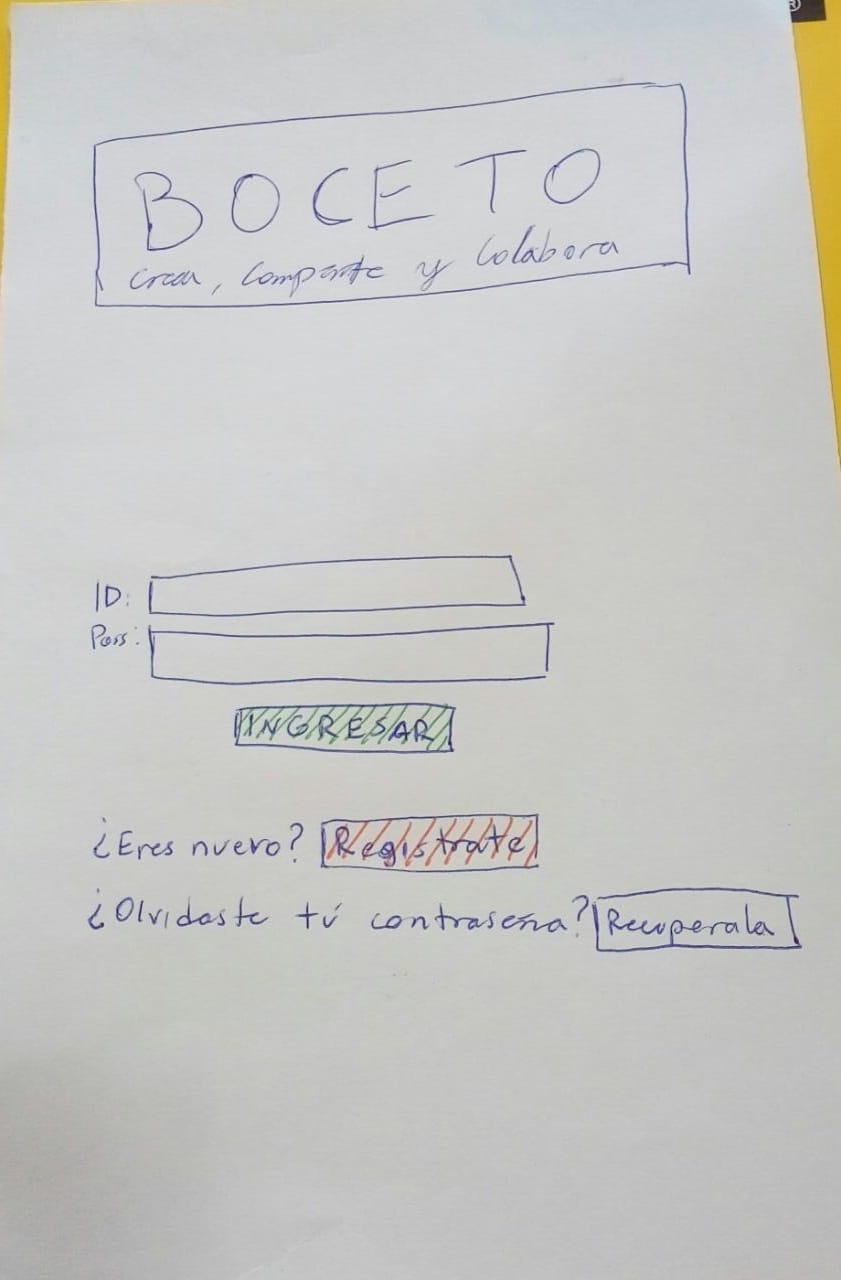 BOCETO
Crea, Comparte y Colabora
ID:
Pass:
INGRESAR
¿Eres nuevo? Registrate
¿Olvidaste tú contraseña? Recuperala
®